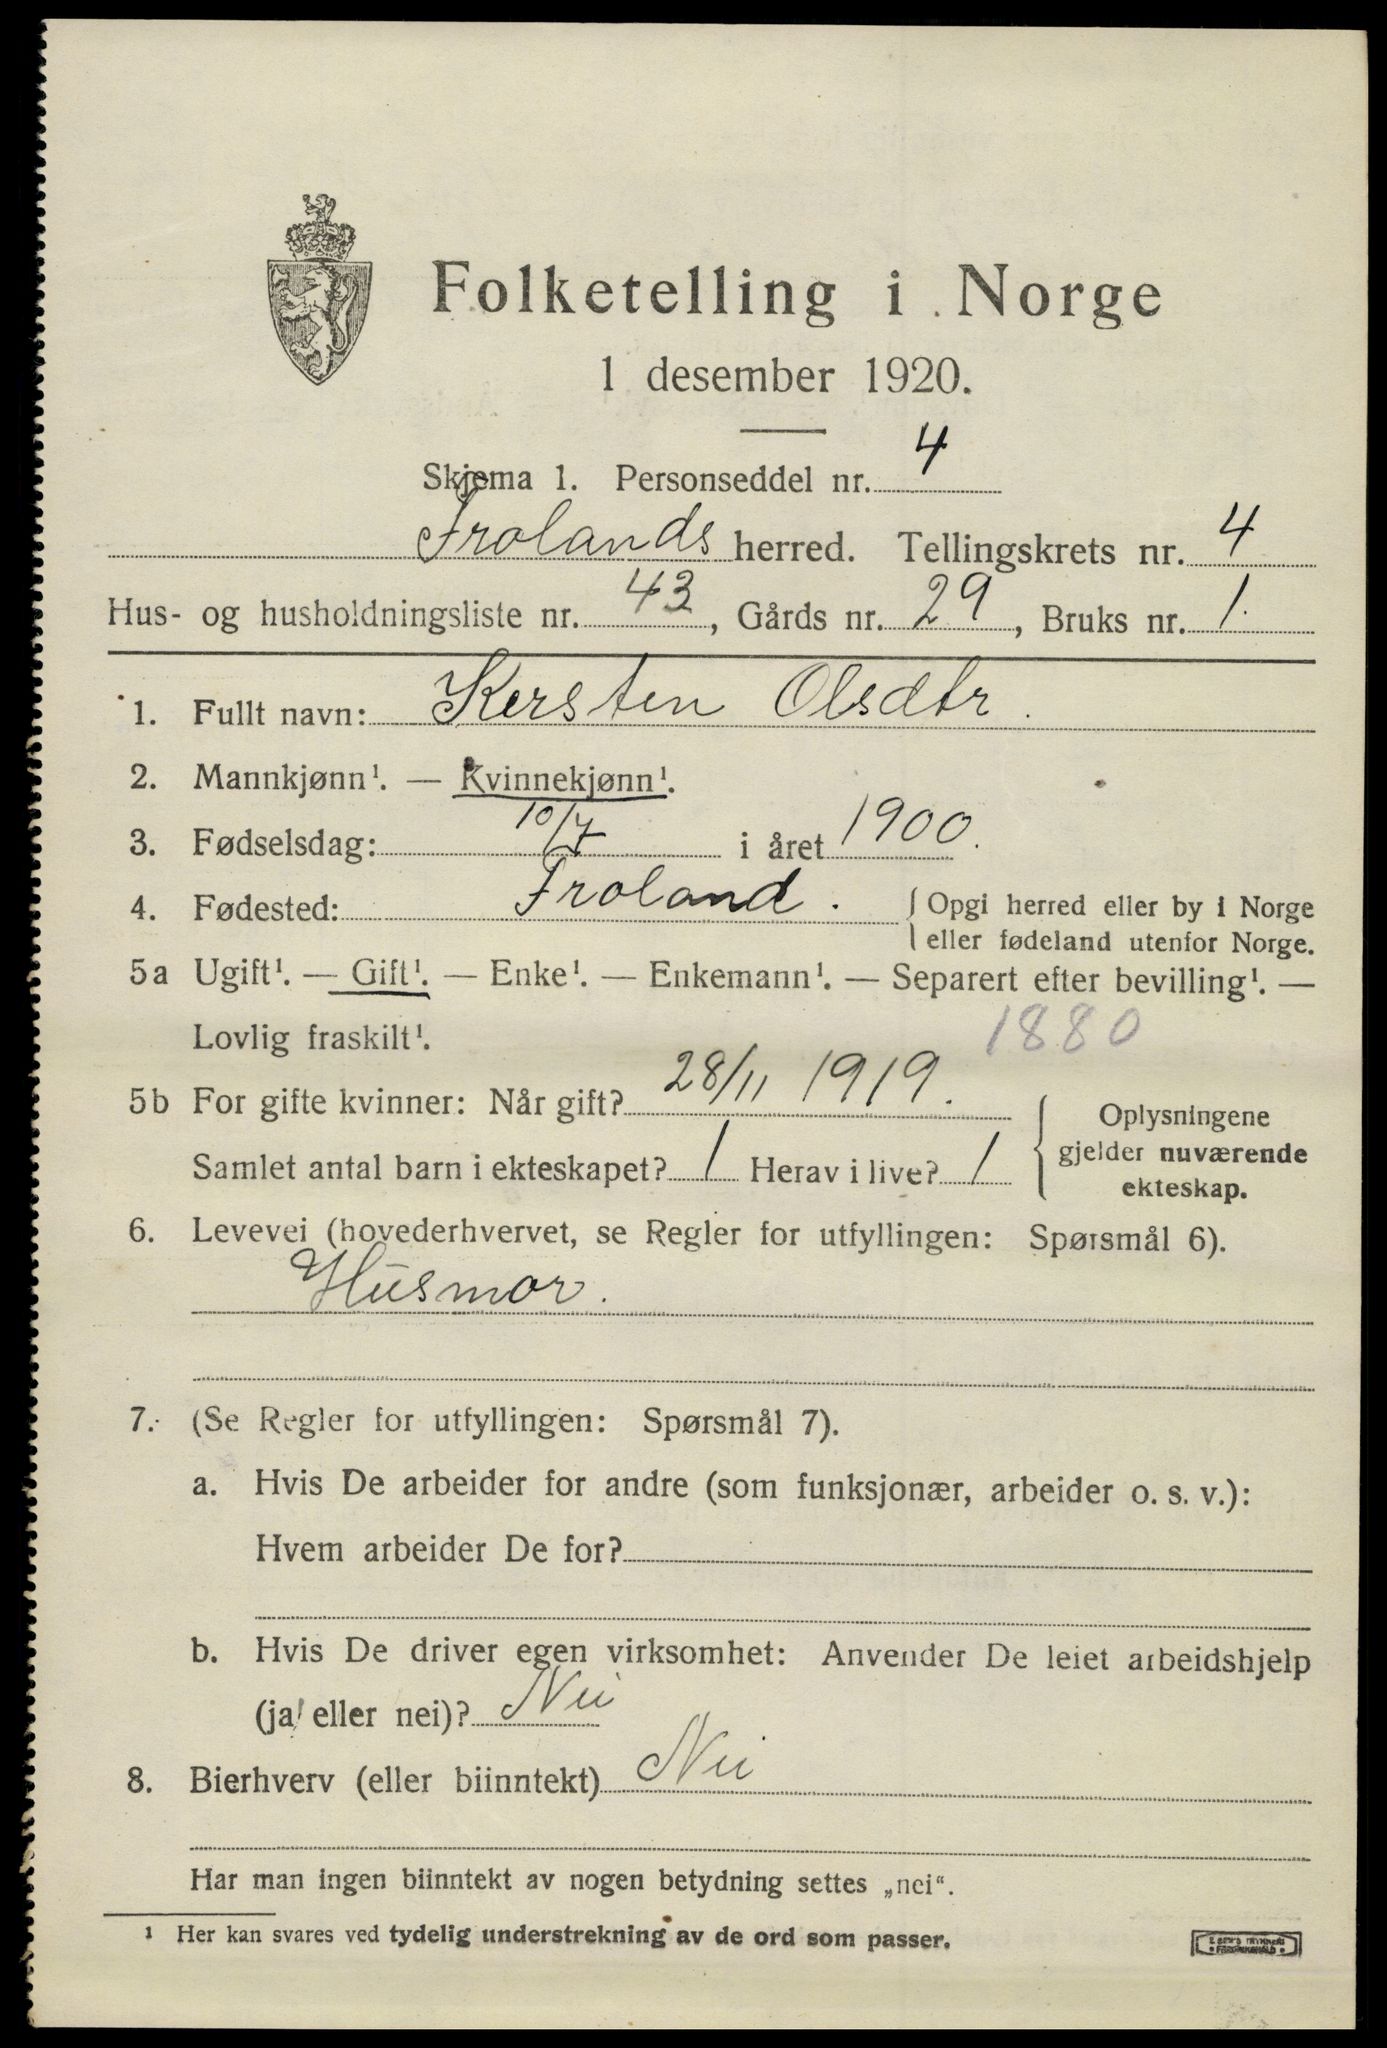 Folketelling i Norge
1 desember 1920.
Skjema 1. Personseddel nr. 4
Frolands herred. Tellingskrets nr. 4
Hus- og husholdningsliste nr. 43, Gårds nr. 29, Bruks nr. 1.
1. Fullt navn: Kersten Olsdtr.
2. Mannkjønn¹. — Kvinnekjønn¹.
3. Fødselsdag: 10/7 i året 1900.
4. Fødested: Froland. { Opgi herred eller by i Norge
eller fødeland utenfor Norge.
5a Ugift¹. — Gift¹. — Enke¹. — Enkemann¹. — Separert efter bevilling¹. —
Lovlig fraskilt¹.
1880
5b For gifte kvinner: Når gift? 28/11 1919.
Samlet antal barn i ekteskapet? 1 Herav i live? 1
{ Oplysningene
gjelder nuværende
ekteskap.
6. Levevei (hovederhvervet, se Regler for utfyllingen: Spørsmål 6).
Husmor.
7. (Se Regler for utfyllingen: Spørsmål 7).
a. Hvis De arbeider for andre (som funksjonær, arbeider o. s. v.):
Hvem arbeider De for?
b. Hvis De driver egen virksomhet: Anvender De leiet arbeidshjelp
(ja eller nei)? Nei
8. Bierhverv (eller biinntekt) Nei
Har man ingen biinntekt av nogen betydning settes „nei“.
¹ Her kan svares ved tydelig understrekning av de ord som passer.